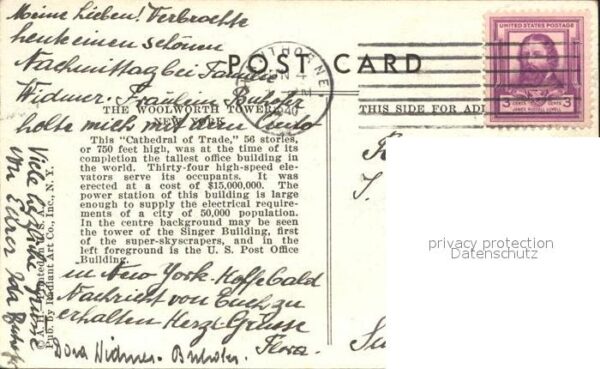 Meine Lieben! Verbrachte
heute einen schönen
Nachmittag bei Familie
Widmer. Fräulein
holte mich mit dem Auto
in New York. Hoffe bald
Nachricht von Euch zu
erhalten. Herzl. Grüsse
Flora.
Dora Widmer-
Viele liebe Grüsse
von Eurer Ida
POST CARD
THORNE
1940
THE WOOLWORTH TOWER
NEW YORK
This "Cathedral of Trade," 56 stories,
or 750 feet high, was at the time of its
completion the tallest office building in
the world. Thirty-four high-speed ele-
vators serve its occupants. It was
erected at a cost of $15,000,000. The
power station of this building is large
enough to supply the electrical require-
ments of a city of 50,000 population.
In the centre background may be seen
the tower of the Singer Building, first
of the super-skyscrapers, and in the
left foreground is the U. S. Post Office
Building.
Pub. by Radiant Art Co., Inc., N. Y.
THIS SIDE FOR AD
UNITED STATES POSTAGE
3 CENTS CENTS 3
JAMES RUSSELL LOWELL
privacy protection
Datenschutz